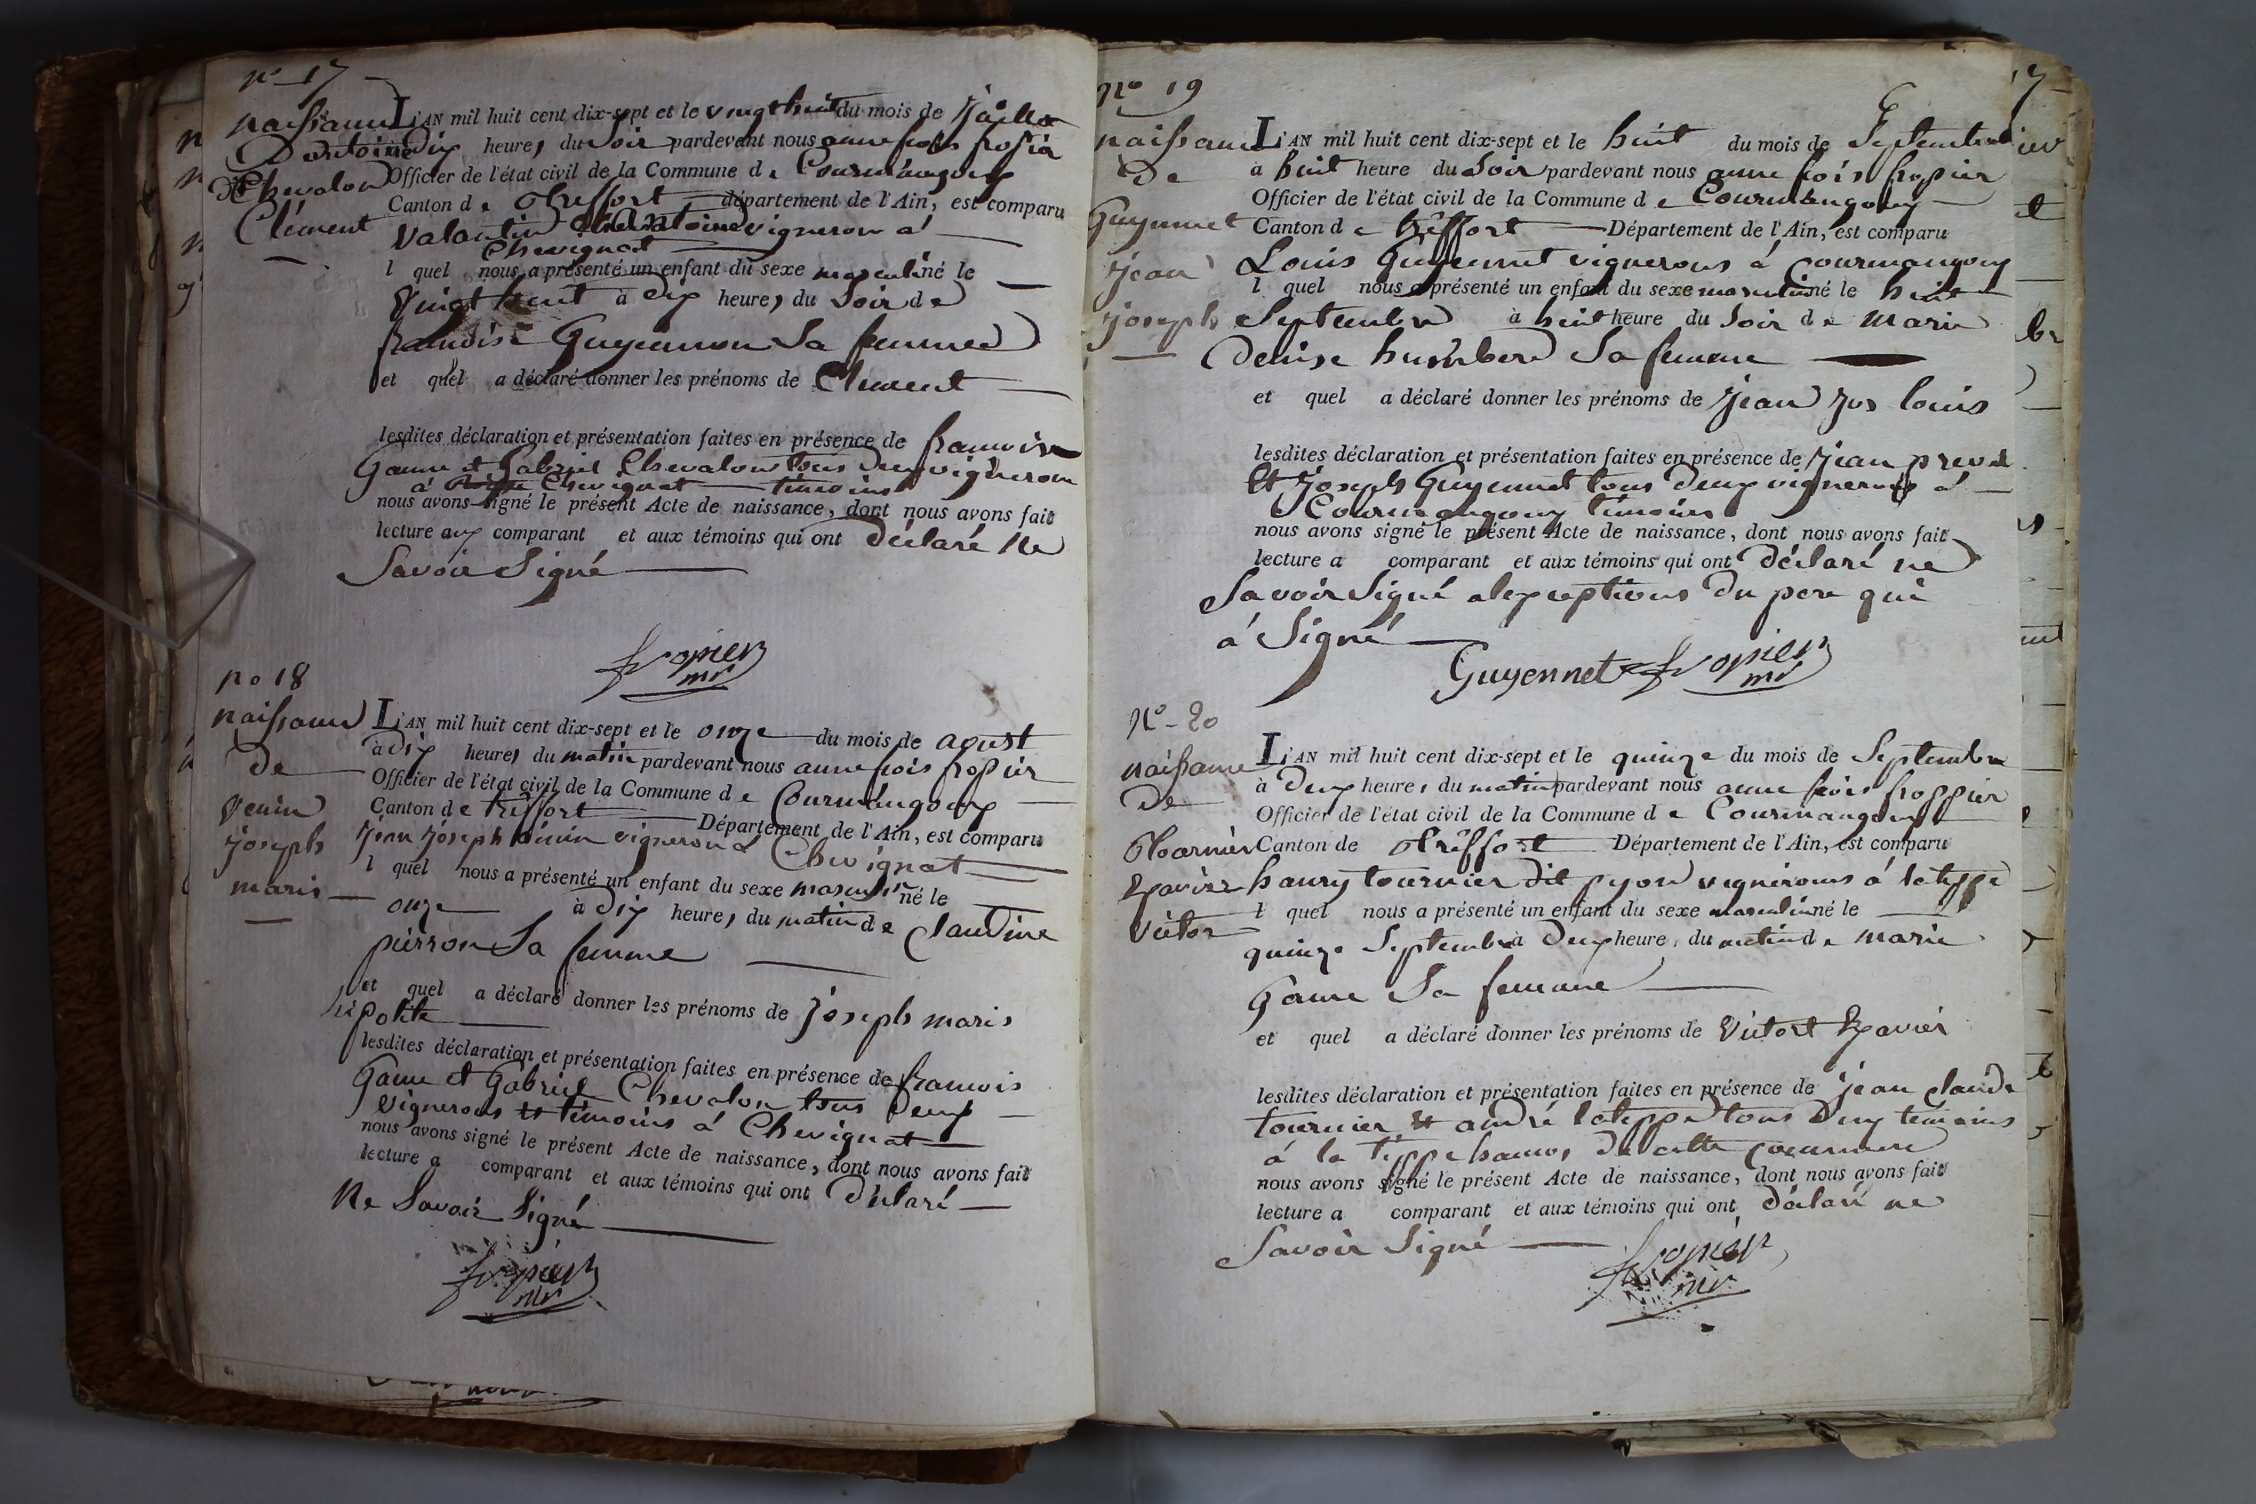 no 17
naissance
D antoine
dt Chevalon
Clément
L'AN mil huit cent dix-sept et le vingt huit du mois de Juillet
Dix heures du soir pardevant nous anne fois fropier
Officier de l'état civil de la Commune de Courmangoux
Canton de treffort département de l'Ain, est comparu
Valantin antoine vigneron a
Chevignat
l quel nous a présenté un enfant du sexe masculin né le
Vingt huit à Dix heures du soir de
francoise Guyennon Sa femme
et quel a déclaré donner les prénoms de Clément
lesdites déclaration et présentation faites en présence de francois
Ganne et Gabriel Chevalon tous Deux vigneron
à Chevignat témoins
nous avons signé le présent Acte de naissance, dont nous avons fait
lecture aux comparant et aux témoins qui ont Déclaré Ne
Savoir Signé
fropier
mr
no 18
naissance
de
venin
joseph
marie
L'AN mil huit cent dix-sept et le onze du mois de aoust
à Dix heures du matin pardevant nous anne fois fropier
Officier de l'état civil de la Commune de Courmangoux
Canton de treffort Département de l'Ain, est comparu
Jean Joseph venin vigneron à Chevignat
l quel nous a présenté un enfant du sexe masculin né le
onze à Dix heures du matin de claudine
pierron Sa femme
et quel a déclaré donner les prénoms de Joseph marie
hipolite
lesdites déclaration et présentation faites en présence de francois
Ganne et Gabriel Chevalon tous Deux
vignerons et témoins à Chevignat
nous avons signé le présent Acte de naissance, dont nous avons fait
lecture a comparant et aux témoins qui ont Déclaré
Ne Savoir Signé
fropier
mr
no 19
naissance
De
Guyennet
jean
joseph
L'AN mil huit cent dix-sept et le huit du mois de Septembre
à huit heure du Soir pardevant nous anne fois fropier
Officier de l'état civil de la Commune de Courmangoux
Canton de treffort Département de l'Ain, est comparu
Louis Guyennet vignerons à courmangoux
l quel nous a présenté un enfant du sexe masculin né le huit
Septembre à huit heure du Soir de Marie
Denise humbert Sa femme
et quel a déclaré donner les prénoms de Jean Jos louis
lesdites déclaration et présentation faites en présence de Jean
Et Joseph Guyennet tous Deux vignerons à
Courmangoux témoins
nous avons signé le présent Acte de naissance, dont nous avons fait
lecture a comparant et aux témoins qui ont Déclaré ne
Savoir Signé alexceptions Du pere qui
à Signé
Guyennet fropier
mr
No 20
naissance
De
tournier
Xavier
Victor
L'AN mil huit cent dix-sept et le quinze du mois de Septembre
à Deux heures du matin pardevant nous anne fois froppier
Officier de l'état civil de la Commune de Courmangoux
Canton de treffort Département de l'Ain, est comparu
haury tournier dit pyon vignerons à latyppe
l quel nous a présenté un enfant du sexe masculin né le
quinze Septembre à Deux heure, du matin de Marie
Ganne Sa femme
et quel a déclaré donner les prénoms de Victort Xavier
lesdites déclaration et présentation faites en présence de jean claude
tournier et andré latyppe tous Deux témoins
à la tippe De cette commune
nous avons signé le présent Acte de naissance, dont nous avons fait
lecture a comparant et aux témoins qui ont déclaré ne
Savoir Signé
fropier
mr